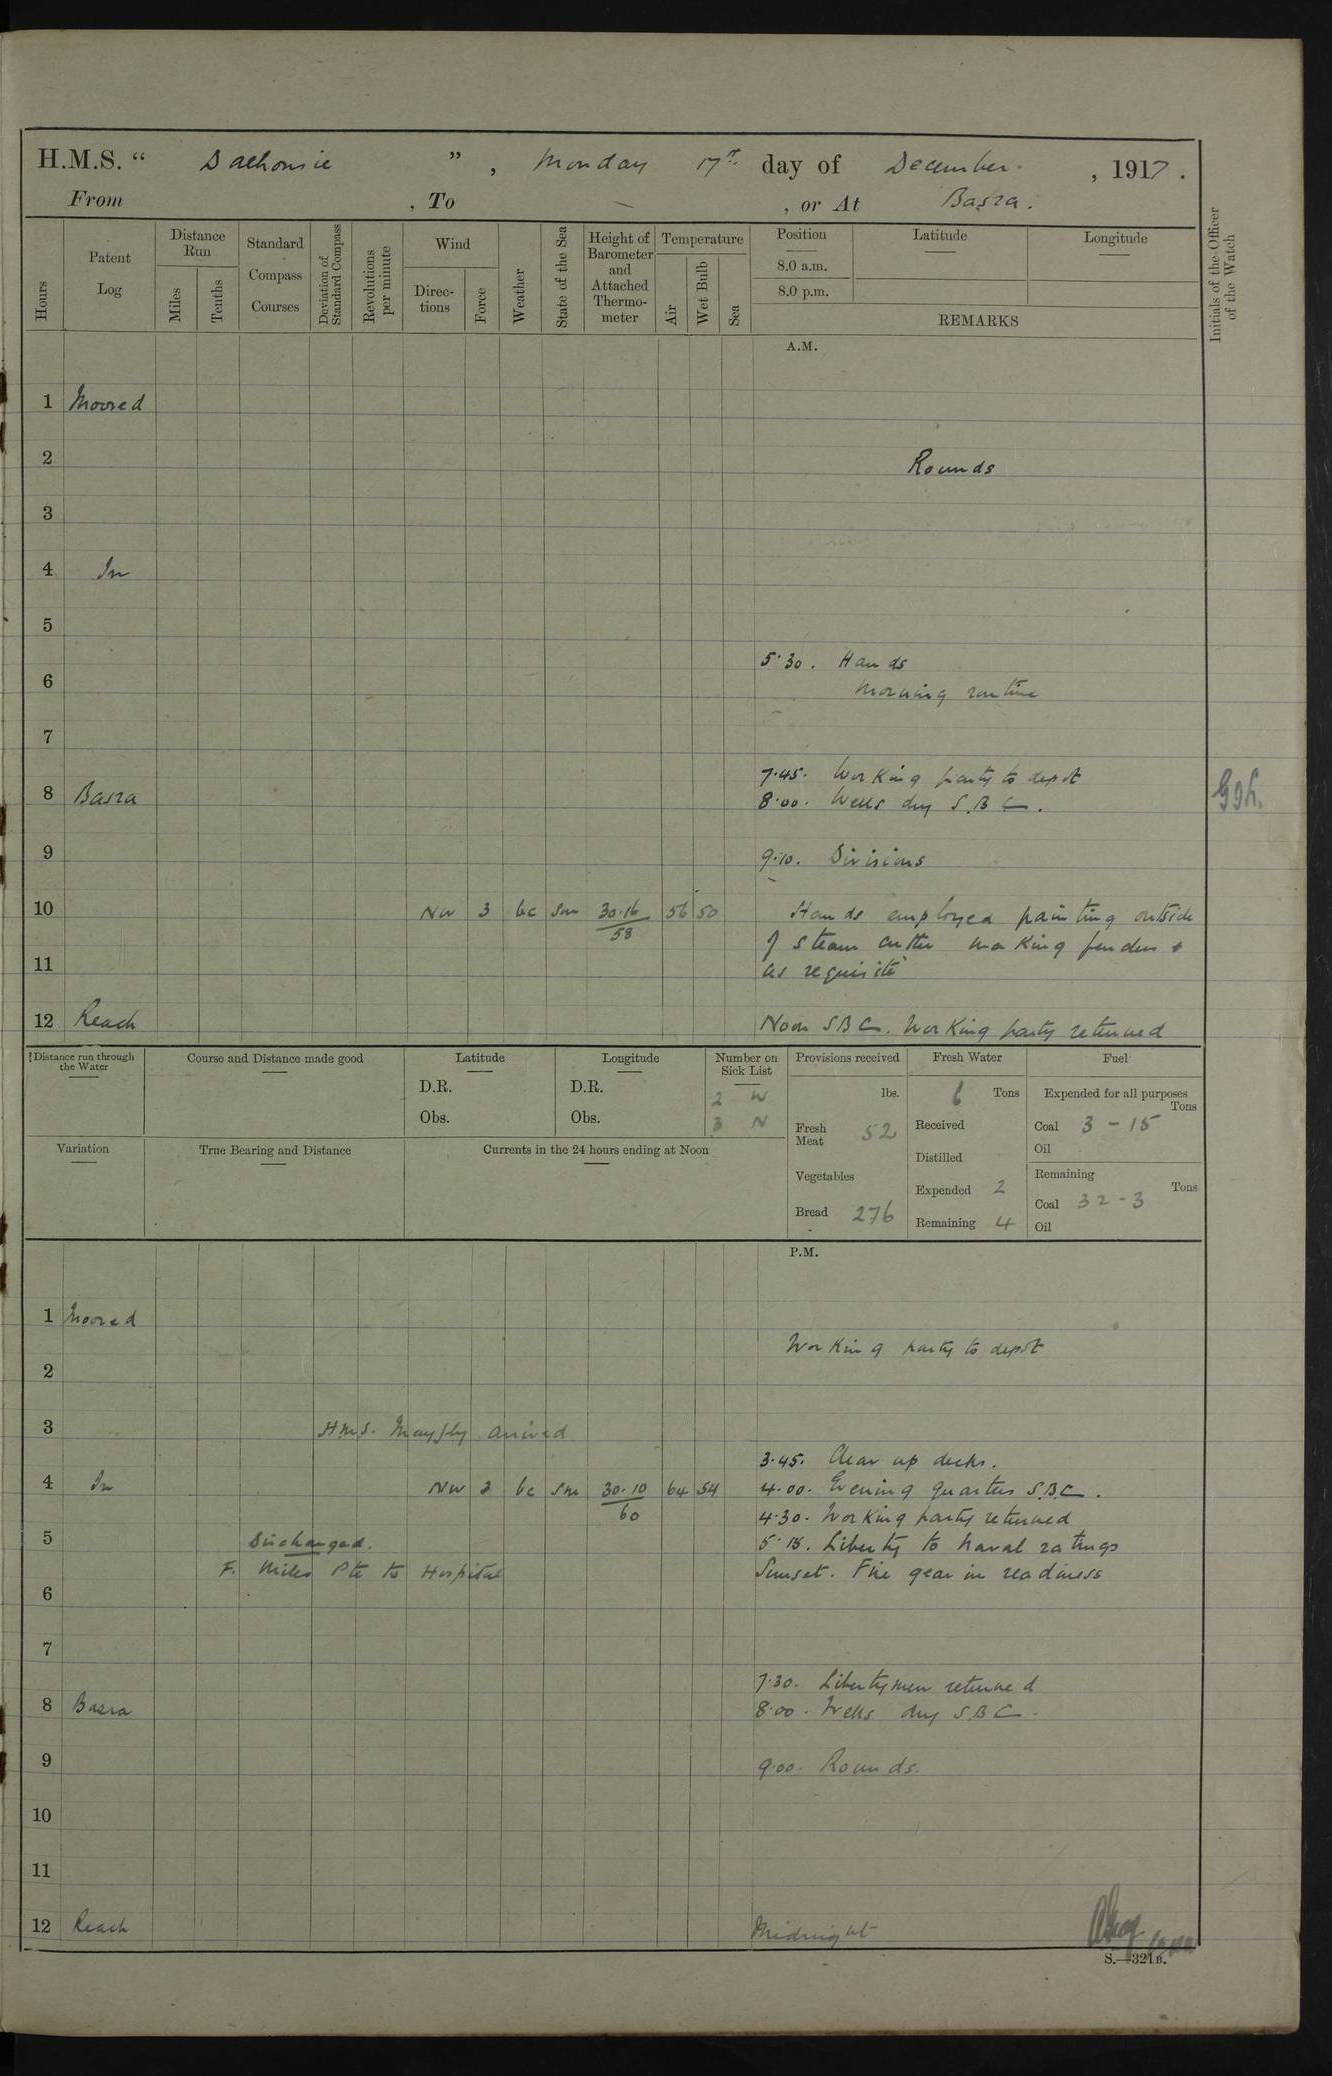 H.M.S. “ Dalhousie ” , Monday 17th day of December , 1917 .
From , To — , or At Basra.
Hours
Patent Log
Distance Run
Miles
Tenths
Standard Compass Courses
Deviation of Standard Compass
Revolutions per minute
Wind
Direc-tions
Force
Weather
State of the Sea
Height of Barometer and Attached Thermo-meter
Temperature
Air
Wet Bulb
Sea
Position
8.0 a.m.
8.0 p.m.
Latitude
Longitude
REMARKS
Initials of the Officer of the Watch
A.M.
1 Moored
2 Rounds
3
4 In
5
5.30. Hands
6 Morning routine
7
7.45. Working party to depot
8 Basra 8.00. Wells dry S.B.C.
9 9.10. Divisions
10 NW 3 bc Sm 30.16 56 50 Hands employed painting outside
58
of steam cutter making fenders &
11 as requisite
12 Reach Noon S B C. Working party returned
Distance run through the Water
Course and Distance made good
Latitude
D.R.
Obs.
Longitude
D.R.
Obs.
Number on Sick List
2 W
3 N
Provisions received
lbs.
Fresh Meat 52
Vegetables
Bread 276
Fresh Water
6 Tons
Received
Distilled
Expended 2
Remaining 4
Fuel
Expended for all purposes
Tons
Coal 3 - 15
Oil
Remaining
Tons
Coal 32 - 3
Oil
Variation
True Bearing and Distance
Currents in the 24 hours ending at Noon
P.M.
1 Moored
Working party to depot
2
3 H.M.S. Mayfly arrived
3.45. Clear up decks.
4 In NW 3 bc Sm 30.10 64 54 4.00. Evening quarters S.B.C.
60
4.30. Working party returned
5 Discharged. 5.15. Liberty to Naval ratings
F. Miles Pte to Hospital Sunset. Fire gear in readiness
6
7
7.30. Libertymen returned
8 Basra 8.00. Wells dry S B C.
9 9.00. Rounds.
10
11
12 Reach Midnight
S.—321B.